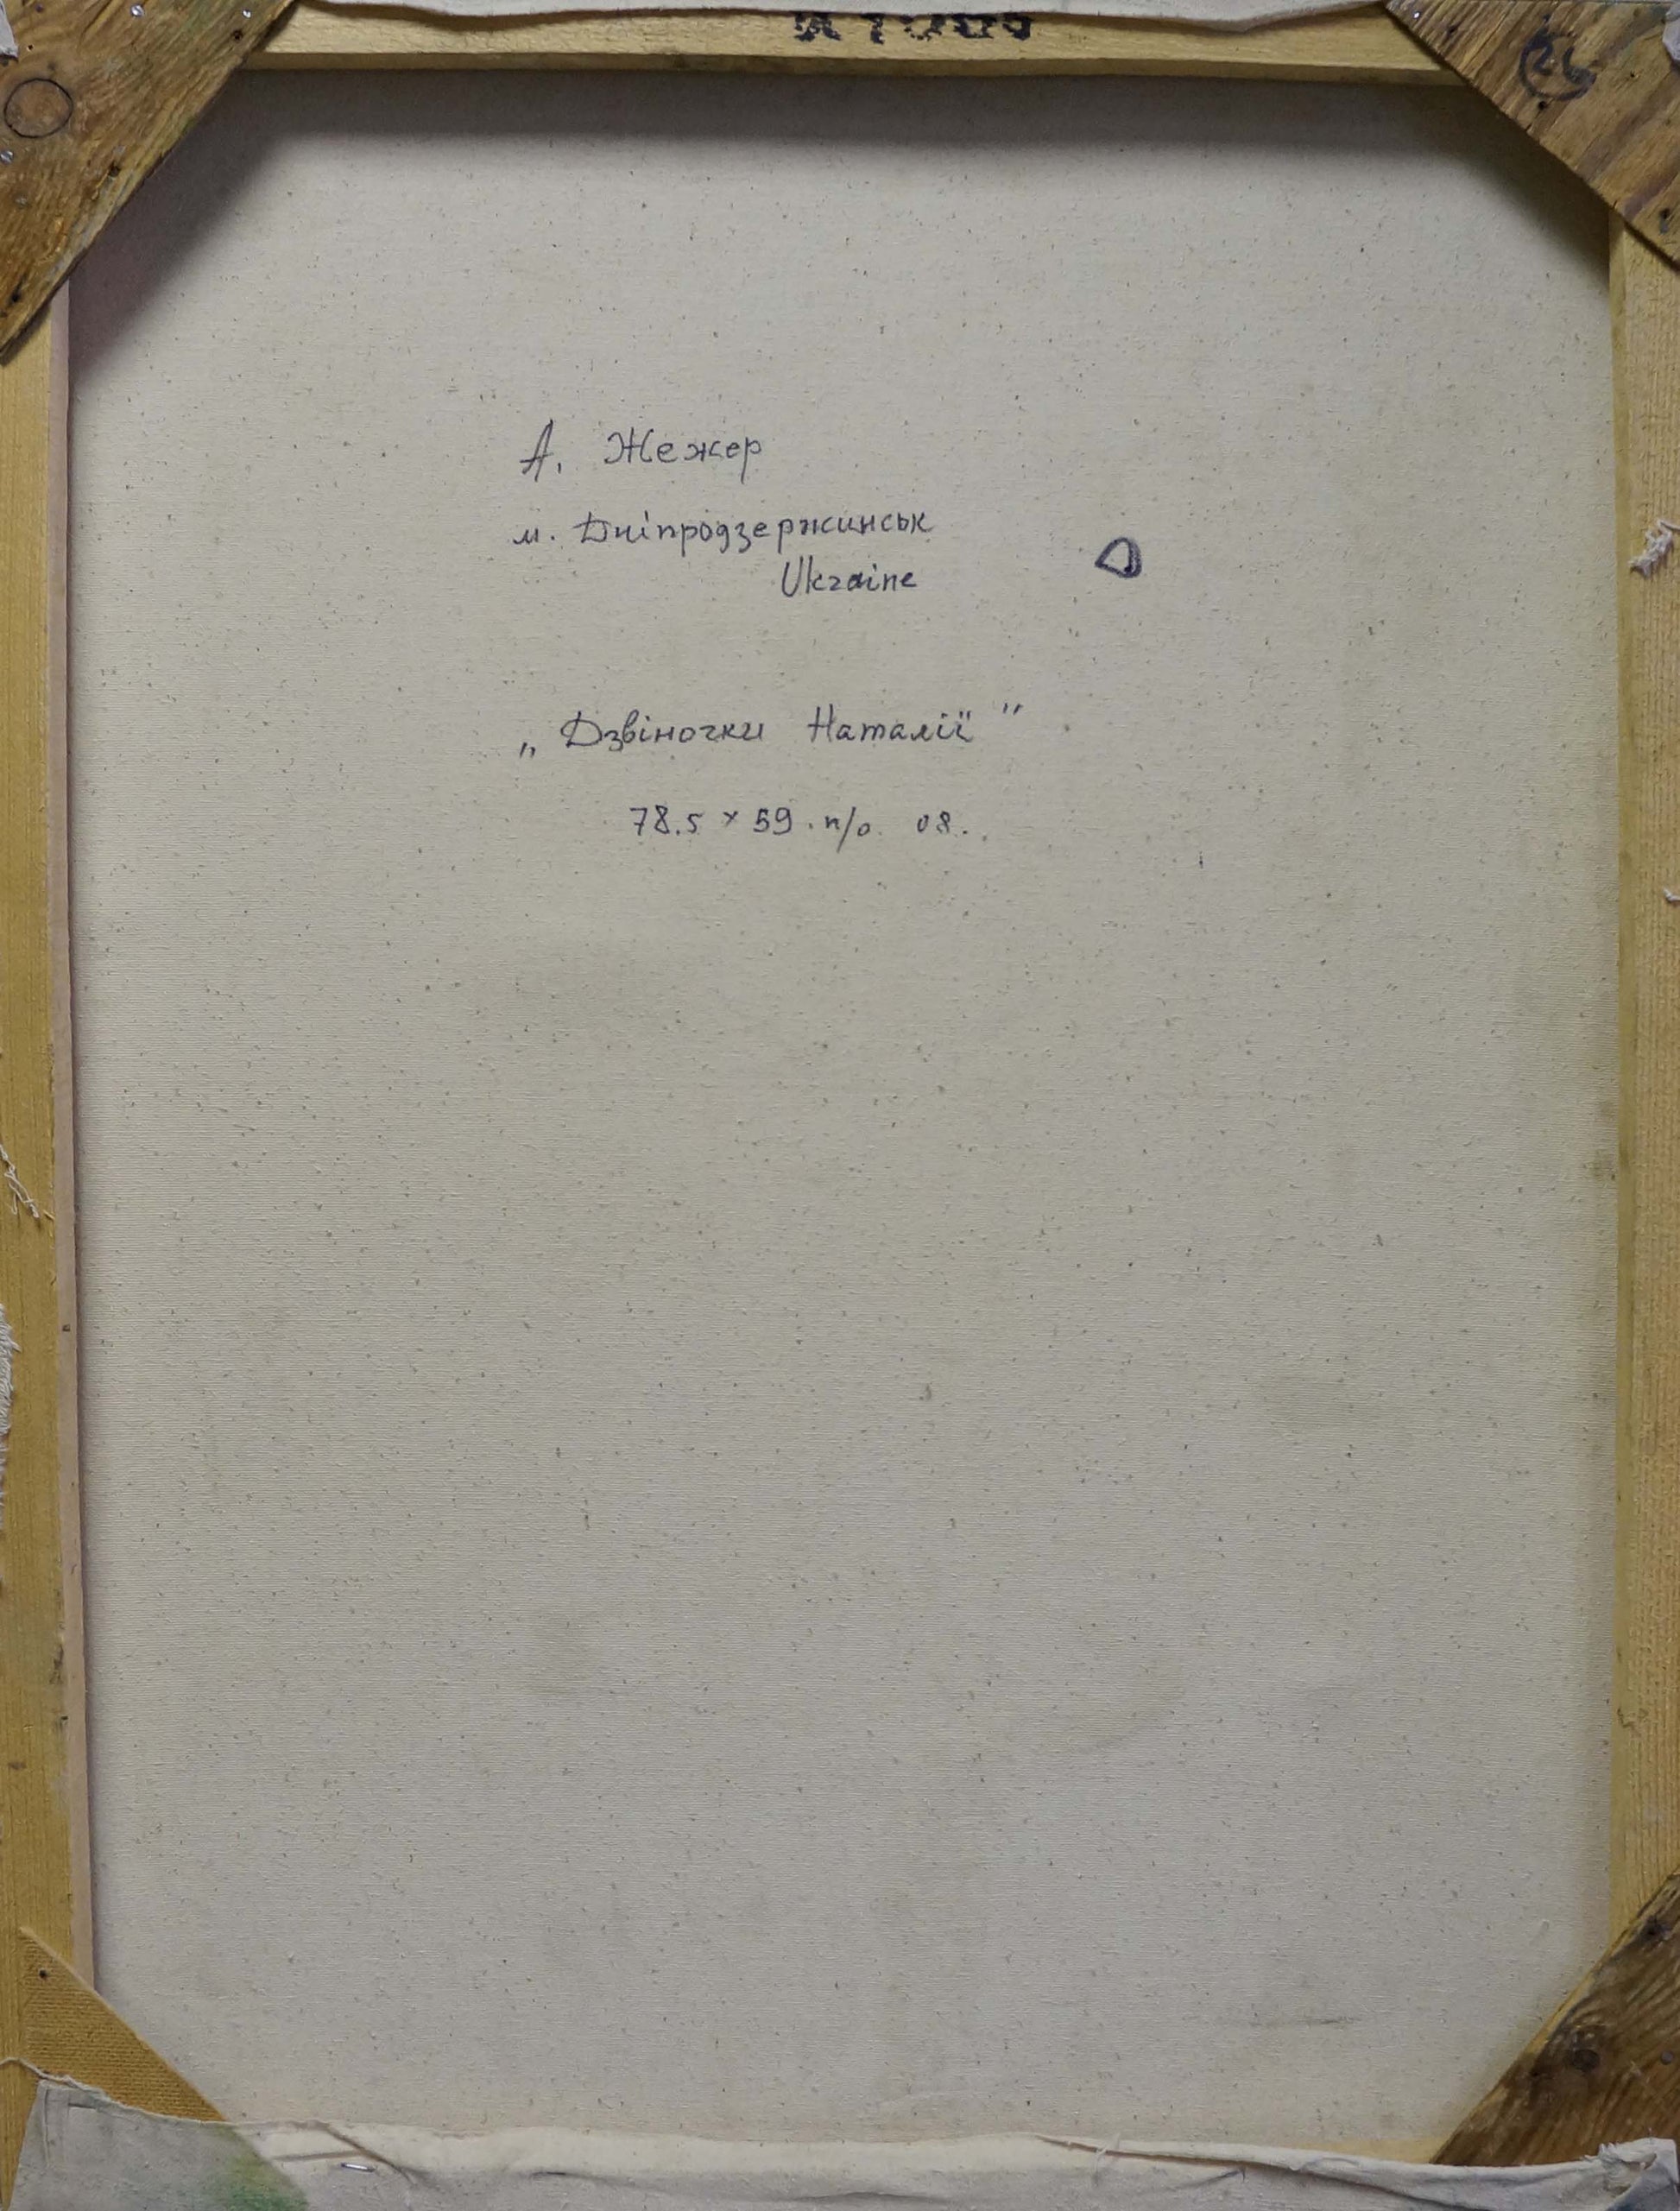 26
А. Жежер
м. Дніпродзержинськ
Ukraine
„Дзвіночки Наталії"
78.5 × 59 . п/о. 08.